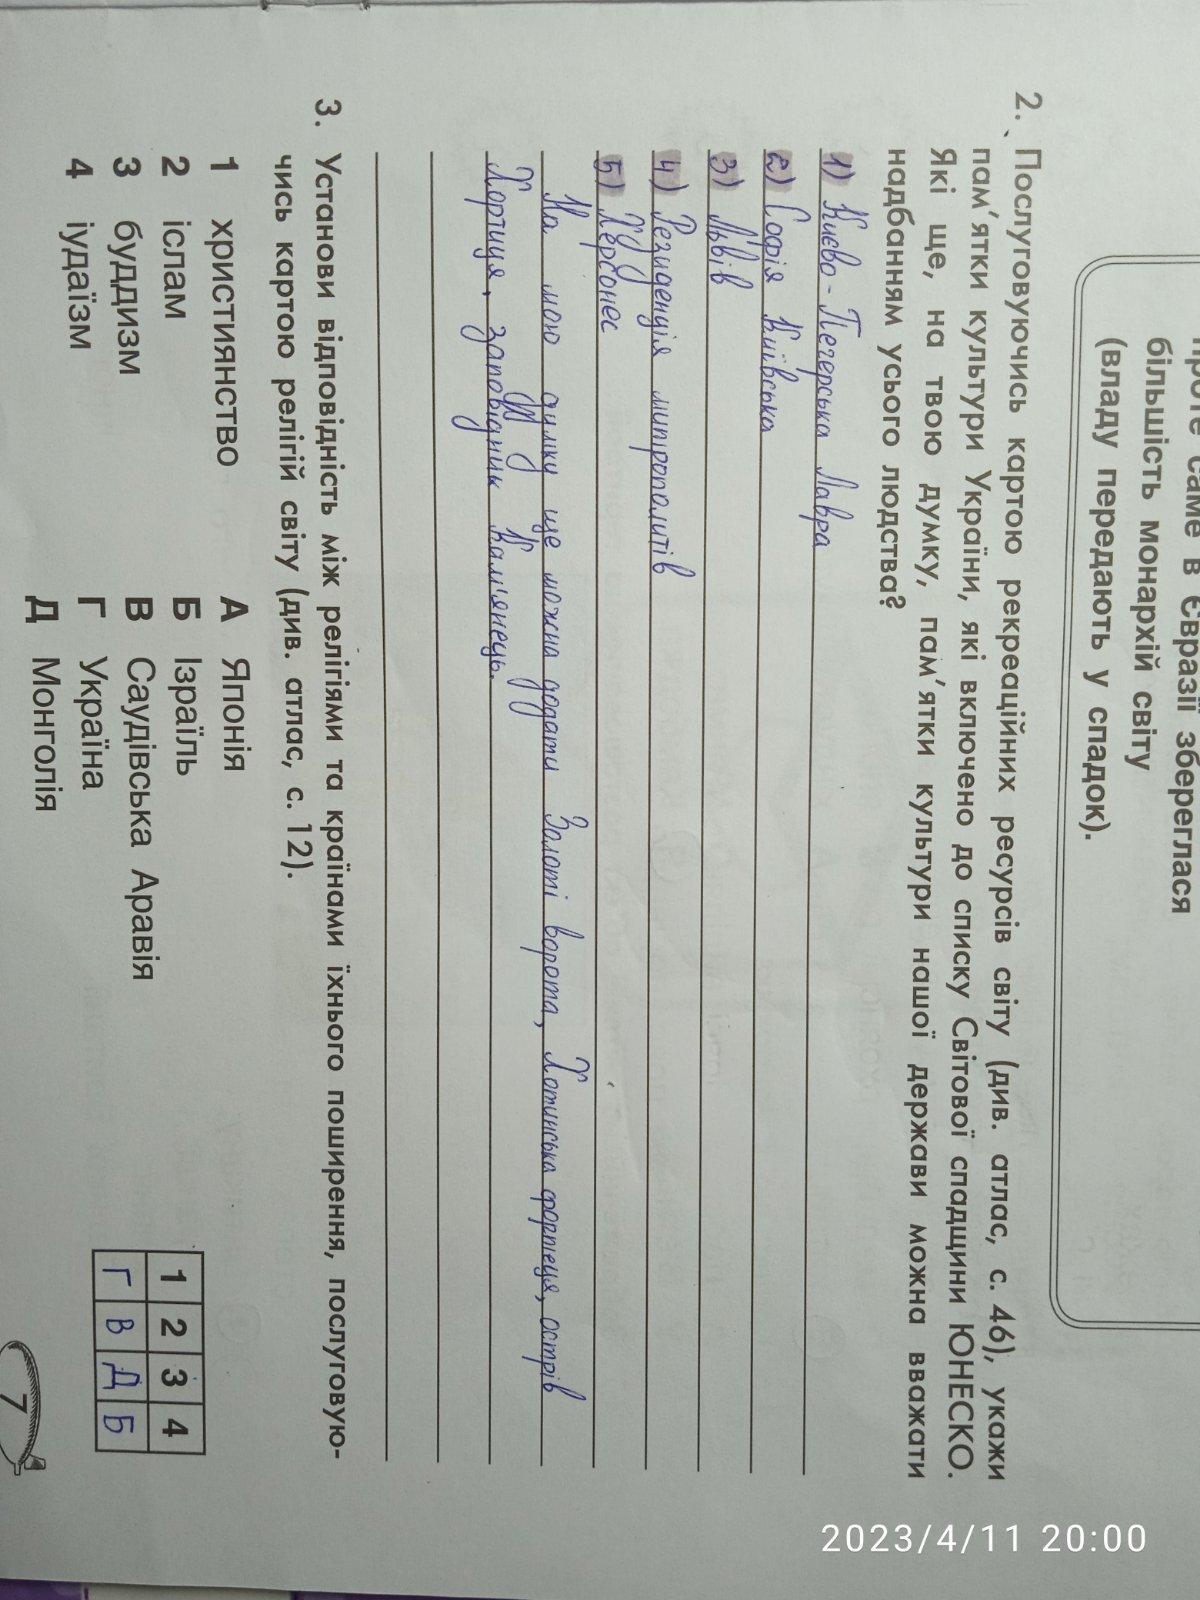 проте саме в Євразії збереглася
більшість монархій світу
(владу передають у спадок).
2. Послуговуючись картою рекреаційних ресурсів світу (див. атлас, с. 46), укажи
пам’ятки культури України, які включено до списку Світової спадщини ЮНЕСКО.
Які ще, на твою думку, пам’ятки культури нашої держави можна вважати
надбанням усього людства?
1) Києво-Печерська Лавра
2) Софія Київська
3) Львів
4) Резиденція митрополитів
5) Херсонес
На мою думку ще можна додати Золоті ворота, Хотинська фортеця, острів
Хортиця, заповідник Кам'янець.
3. Установи відповідність між релігіями та країнами їхнього поширення, послуговую-
чись картою релігій світу (див. атлас, с. 12).
1 християнство А Японія
2 іслам Б Ізраїль
3 буддизм В Саудівська Аравія
4 іудаїзм Г Україна
Д Монголія
1 2 3 4
Г В Д Б
7
2023/4/11 20:00